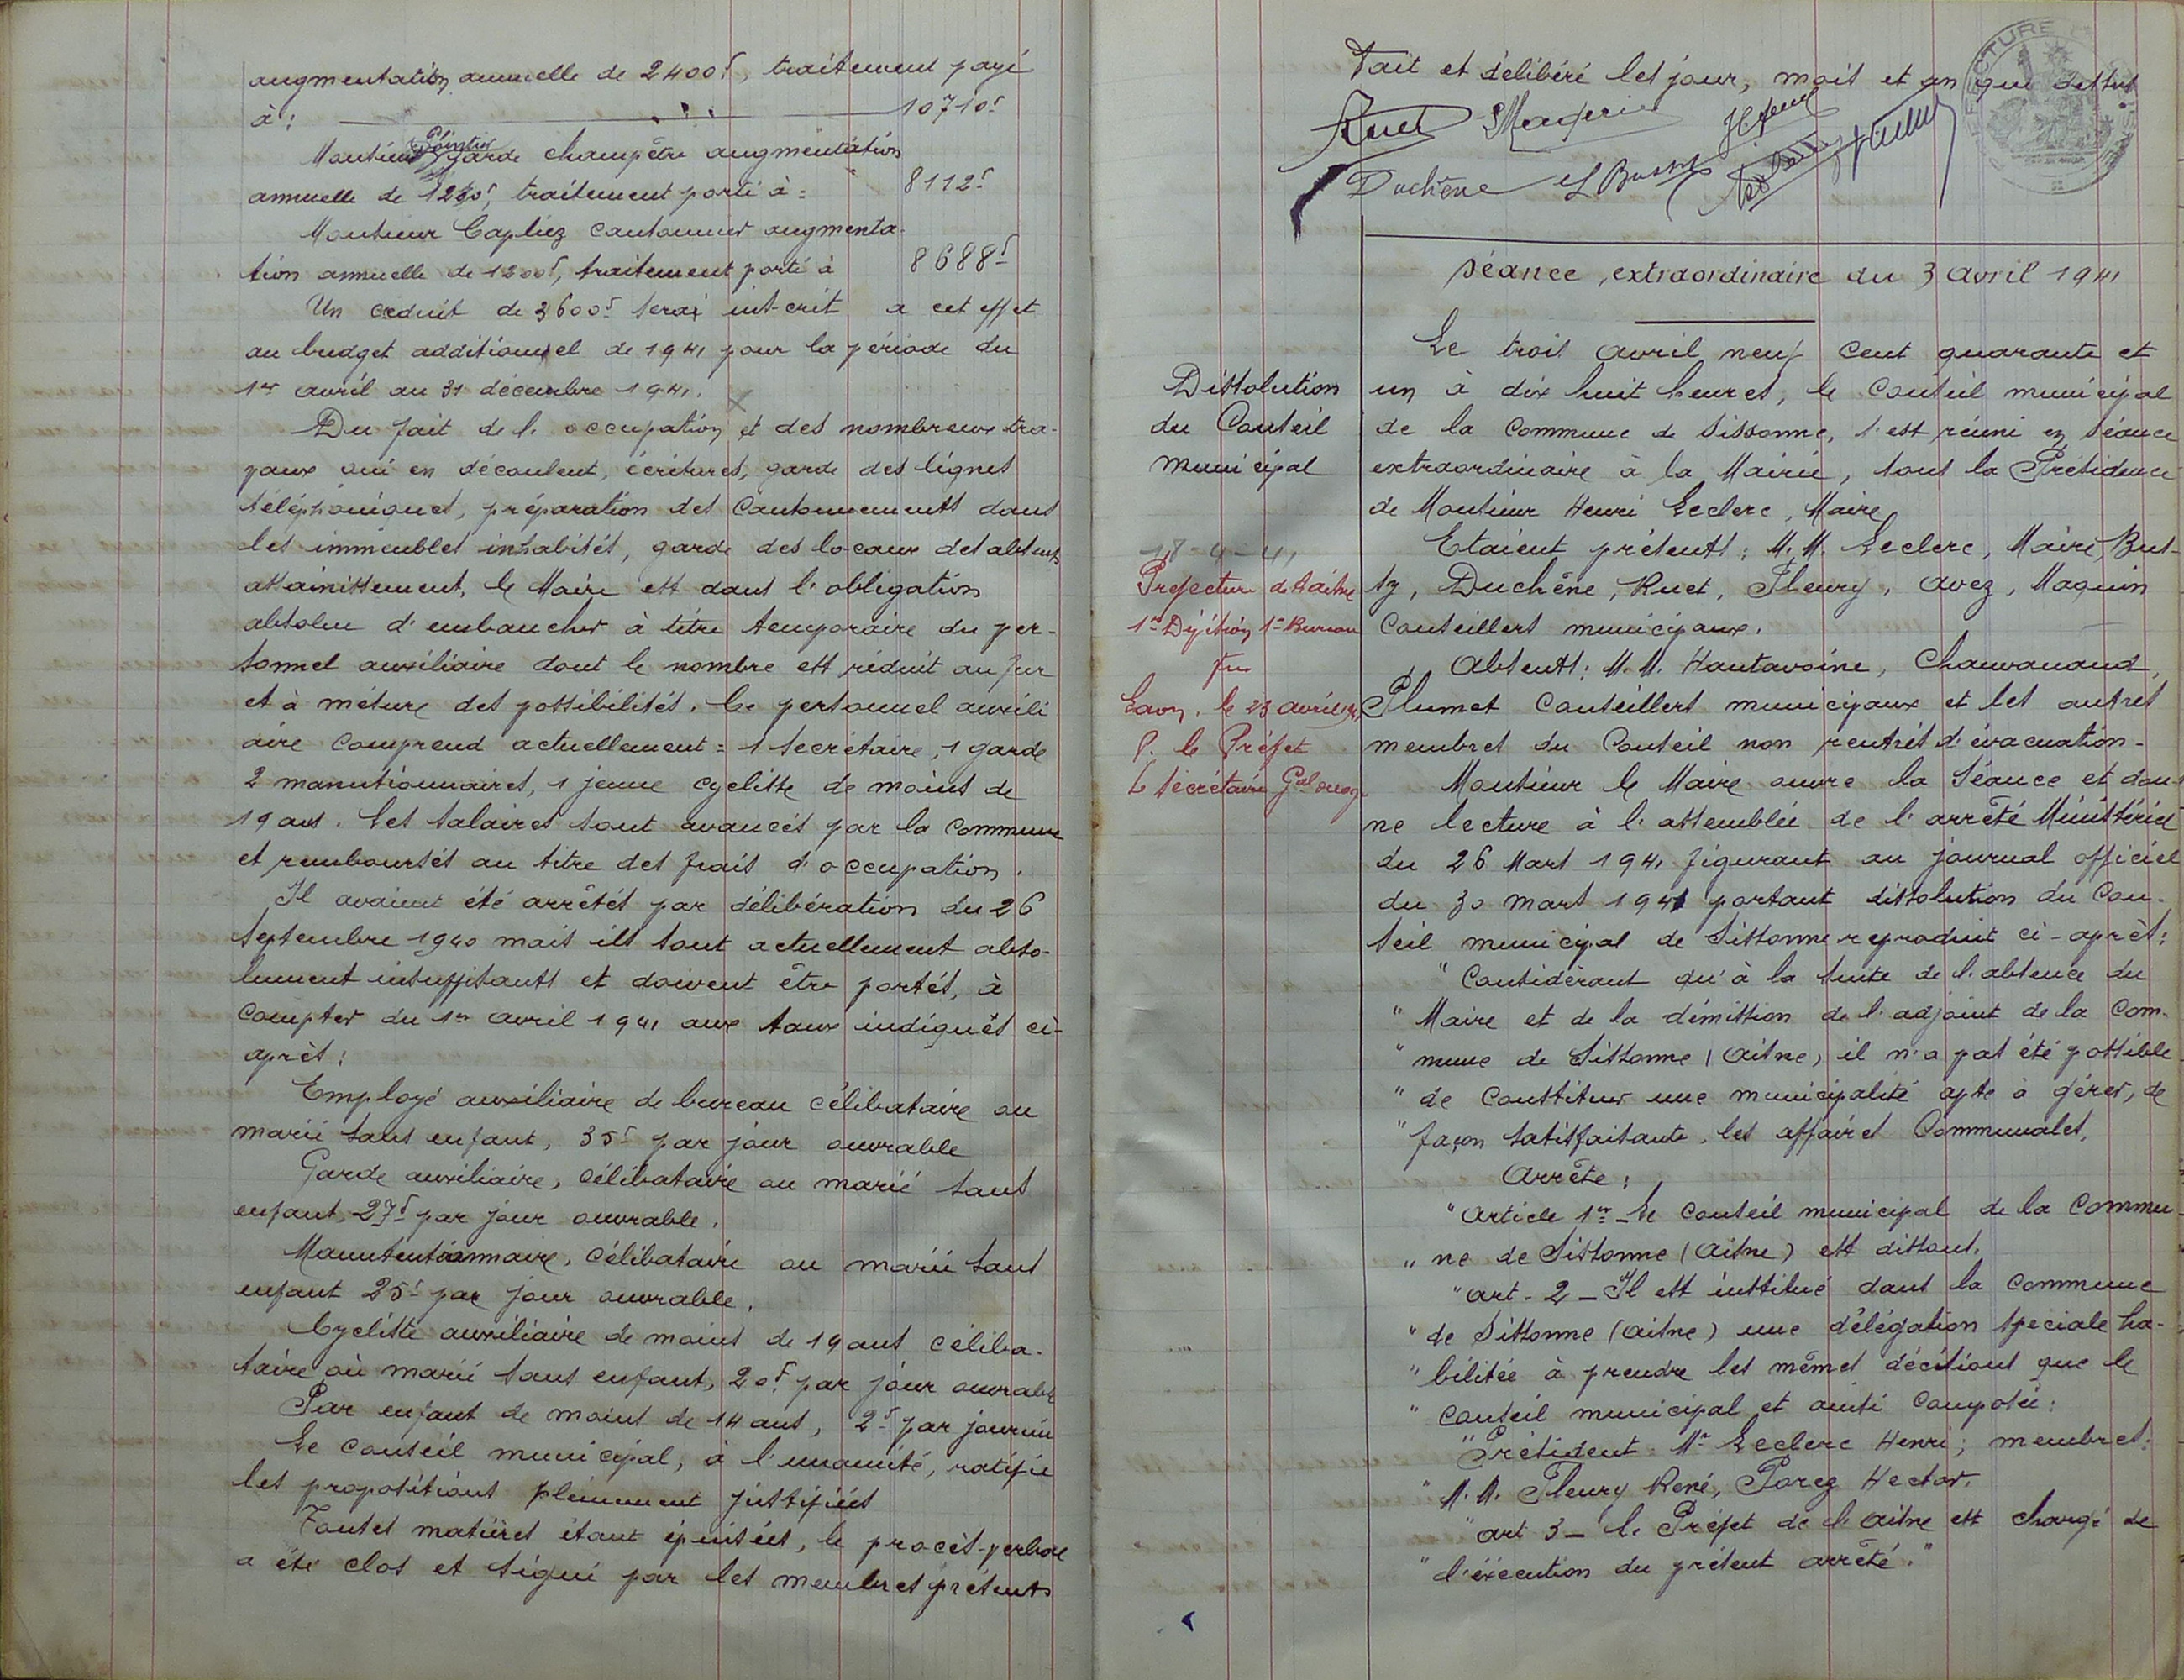 augmentation annuelle de 2400f, traitement payé
à: 10710f
Monsieur Pointier garde champêtre augmentation
annuelle de 1200f, traitement porté à = 8112f
Monsieur Capliez cantonnier augmenta-
tion annuelle de 1200f, traitement porté à 8688f
Un crédit de 3600f sera inscrit a cet effet
au budget additionnel de 1941 pour la période du
1er avril au 31 décembre 1941.
Du fait de l'occupation et des nombreux tra-
vaux qui en découlent, écritures, garde des lignes
téléphoniques, préparation des cantonnements dans
les immeubles inhabités, garde des locaux des absents
assainissement, le Maire est dans l'obligation
absolue d'embaucher à titre temporaire du per-
sonnel auxiliaire dont le nombre est réduit au fur
et à mesure des possibilités. Ce personnel auxili
aire comprend actuellement = 1 secrétaire, 1 garde
2 manutionnaires, 1 jeune cycliste de moins de
19 ans. Les salaires sont avancés par la commune
et remboursés au titre des frais d'occupation.
Il avaient été arrêtés par délibération du 26
septembre 1940 mais ils sont actuellement abso-
lument insuffisants et doivent être portés, à
compter du 1er avril 1941 aux taux indiqués ci-
après:
Employé auxiliaire de bureau célibataire ou
marié sans enfant, 35f par jour ouvrable
Garde auxiliaire, célibataire ou marié sans
enfant, 27f par jour ouvrable.
Manutentionnaire, célibataire ou marié sans
enfant 25f par jour ouvrable.
Cycliste auxiliaire de moins de 19 ans céliba-
taire où marié sans enfant, 20f par jour ouvrable
Par enfant de moins de 14 ans, 2f par journée
Le conseil municipal, à l'unanimité, ratifie
les propositions pleinement justifiées
Toutes matières étant épuisées, le procès-verbal
a été clos et signé par les membres présents
Fait et délibéré les jour, mois et an que dessus
Ruet
Duchêne
PREFECTURE
Séance extraordinaire du 3 avril 1941
Dissolution
du Conseil
municipal
18-4-41
Préfecture de l'Aisne
1re Division 1er Bureau
Vu
Laon, le 23 avril 1941
P. le Préfet
Le Secrétaire Gal
Le trois avril neuf cent quarante et
un à dix huit heures, le conseil municipal
de la commune de Sissonne, s'est réuni en séance
extraordinaire à la Mairie, sous la Présidence
de Monsieur Henri Leclerc, Maire
Etaient présents: M.M. Leclerc, Maire, Bus-
sy, Duchêne, Ruet, Fleury, Avez, Maquin
Conseillers municipaux.
Absents: M.M. Hautavoine, Chauvanaud,
Plumet conseillers municipaux et les autres
membres du conseil non rentrés d'évacuation.
Monsieur le Maire ouvre la séance et don-
ne lecture à l'assemblée de l'arrêté Ministériel
du 26 Mars 1941 figurant au journal officiel
du 30 mars 1941 portant dissolution du con-
seil municipal de Sissonne reproduit ci-après:
"Considérant qu'à la suite de l'absence du
"Maire et de la démission de l'adjoint de la com-
"mune de Sissonne (Aisne) il n'a pas été possible
"de constituer une municipalité apte à gérer, de
"façon satisfaisante, les affaires communales,
Arrête:
"Article 1er - Le conseil municipal de la commu-
"ne de Sissonne (Aisne) est dissout.
"art. 2 - Il est institué dans la commune
"de Sissonne (Aisne) une délégation spéciale ha-
"bilitée à prendre les mêmes décisions que le
"conseil municipal et ainsi composée:
"Président: Mr Leclerc Henri; membres:
"M.M. Fleury René, Parez Hector.
"art 3 - Le Préfet de l'Aisne est chargé de
"l'éxécution du présent arrêté."